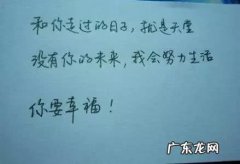 和你走过的日子,就是天堂
没有你的未来,我会努力生活
你要幸福!
广东龙网